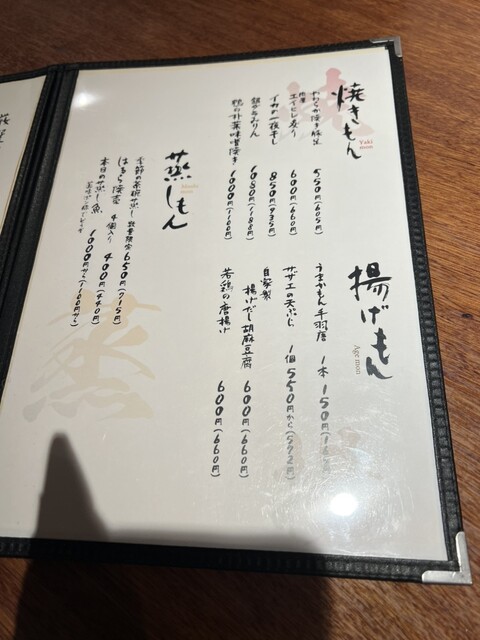 焼きもん
Yaki mon
やわらか焼き豚足 550円(605円)
炙屋 エイヒレ炙り 600円(660円)
イカの一夜干し 850円(935円)
銀ダラみりん 1080円(1188円)
鶏の朴葉味噌焼き 1000円(1100円)
揚げもん
Age mon
うまかもん手羽唐 1本 150円
サザエの天ぷら 1個 550円から(572円)
自家製
揚げだし胡麻豆腐 600円(660円)
若鶏の唐揚げ 600円(660円)
蒸しもん
Mushi mon
季節の茶碗蒸し 数量限定 650円(715円)
はるら焼売 4個入り 400円(440円)
本日の蒸し魚 1000円から(1100円から)
蒸